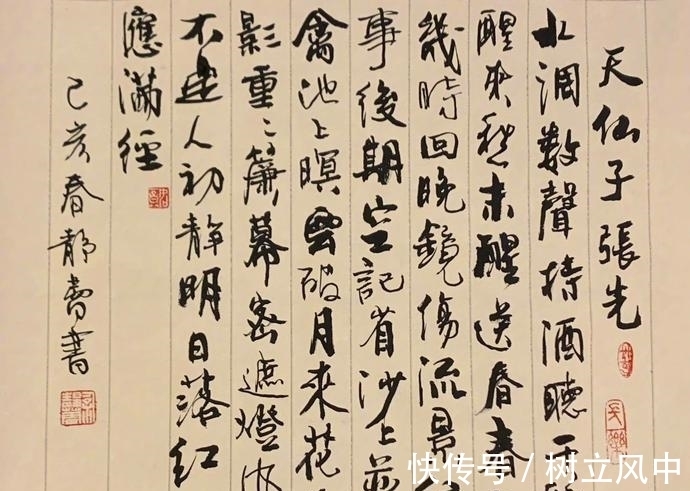 天仙子張先
水調數聲持酒聽
醒來愁未醒送春春
幾時回晚鏡傷流景
事後期空記省沙上並
禽池上暝雲破月來花
影重〻簾幕密遮燈
不定人初靜明日落紅
應滿徑
己亥春静書
快传号 / 树立风中